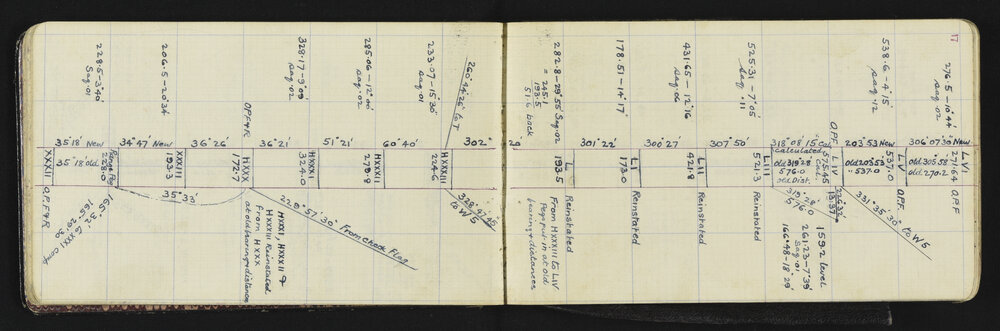 17
228.5-3°40'
Sag.01
206.5-20°34
OPF&R
329.17-9°09'
sag.02
285.06-12°00'
sag.02
233.07-15°30'
sag.01
260°44'26" to T
282.8-29°55 Sag.02
=245.1
193.5
51.6 back
178.51-14°17'
431.65-12°16
sag.06
525.31-7°05'
sag.11
OPF
538.6-4°15'
sag.12
276.5-10°44'
35°18' New
34°47 New
36°26
36°21'
51°21'
60°40'
302°
301°22'
300°27
307°50'
318°08'15" Cal
203°53 New
306°07'30" New
XXXII
35°18' old
228.0
Range Peg
XXXIII
193.3
HXXX
172.7
HXXXI
324.0
HXXXII
278.8
HXXXIII
224.6
L
193.5
LI
173.0
LII
421.8
LIII
521.3
Calculated
old 319°28
576.0
old Dist.
575.45
Cal.
LIV
old 203°53
=537.0
537.0
LV
old 305°58
old 270.2
271.64
LVI
O.P.F&R
35°33'
228°57'30" From Check Flag
328°47'45"
to W5
Reinstated
Reinstated
Reinstated
Reinstated
319°28'
576.0
OPF
331°35'30"
to W5
OPF
HXXXI, HXXXII &
HXXXIII Reinstated
at old bearing & distance
from HXXX
From HXXXIII to LIV
Pegs put in at old
bearing & distances
159.2 level
261.23-7°39'
Sag.01
166°48-18°29'